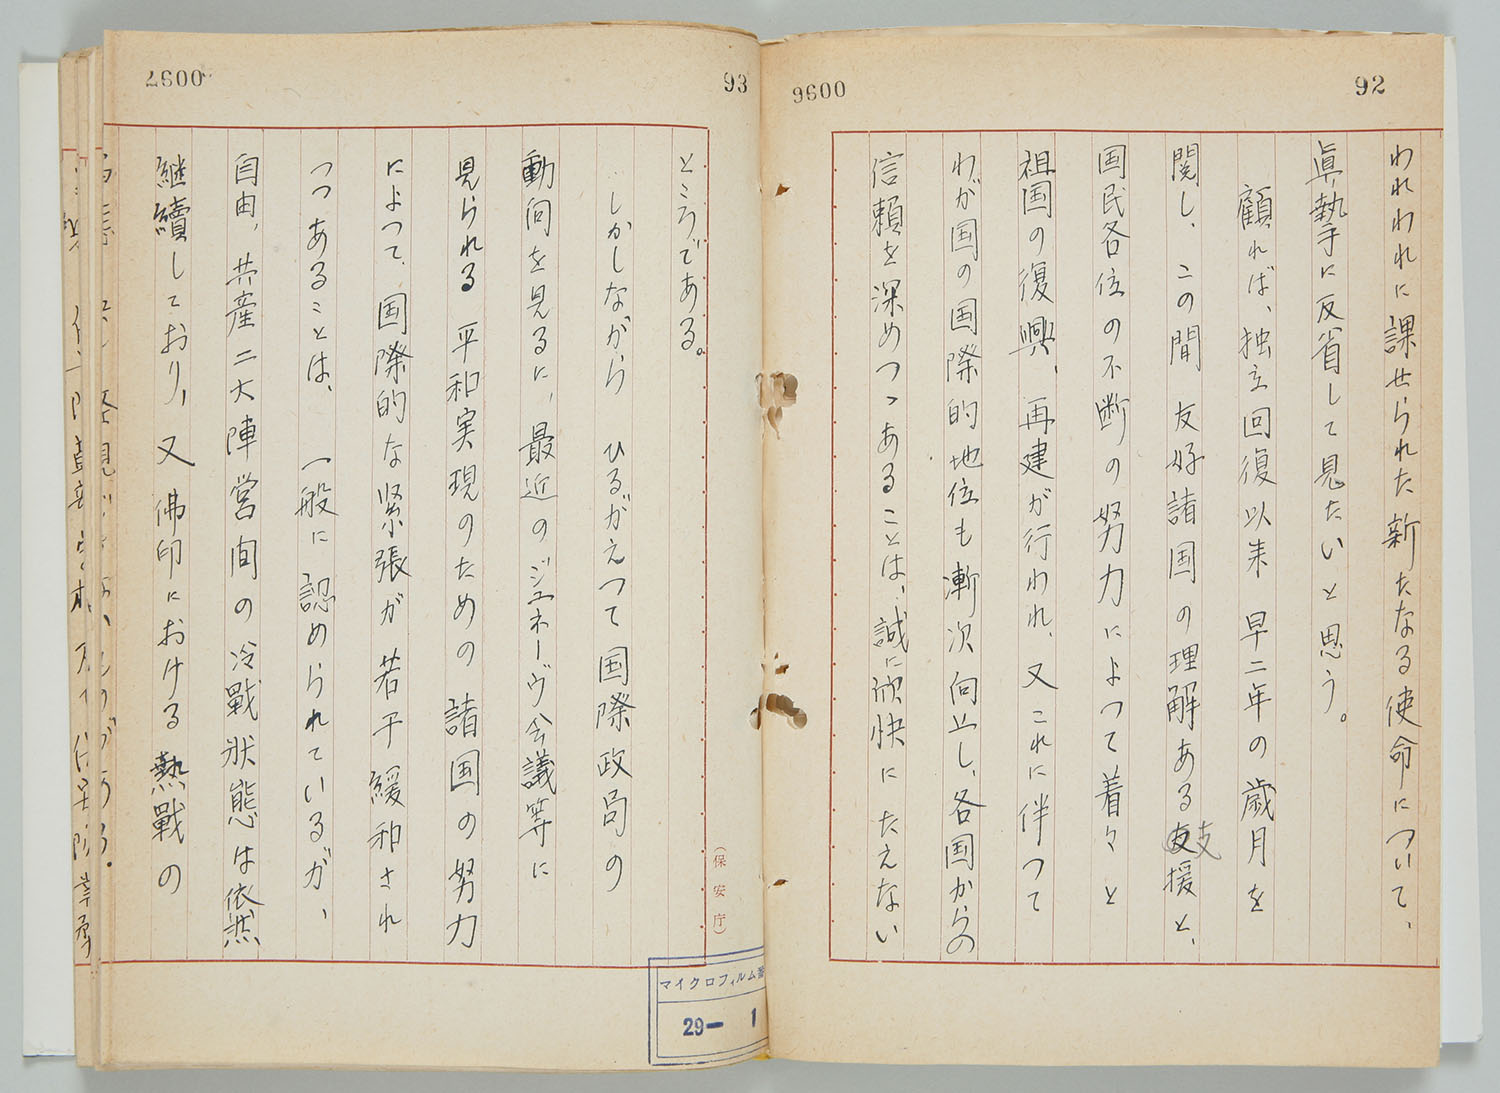 92
9600
われわれに課せられた新たなる使命について、
眞執手に反省して見たいと思う。
顧れば、独立回復以来 早二年の歳月を
閲し、この間 友好諸国の理解ある支援と、
国民各位の不断の努力によつて着々と
祖国の復興、再建が行われ、又これに伴つて
わが国の国際的地位も漸次向上し、各国からの
信頼を深めつゝあることは、誠に欣快にたえない
93
4600
ところである。
しかしながら ひるがえつて国際政局の
動向を見るに、最近のジュネーヴ会議等に
見られる 平和実現のための 諸国の努力
によつて、国際的な緊張が若干緩和され
つつあることは、一般に認められているが、
自由、共産二大陣営間の冷戰状態は依然
継續しており、又 佛印における熱戰の
(保安庁)
マイクロフィルム番
29— 1